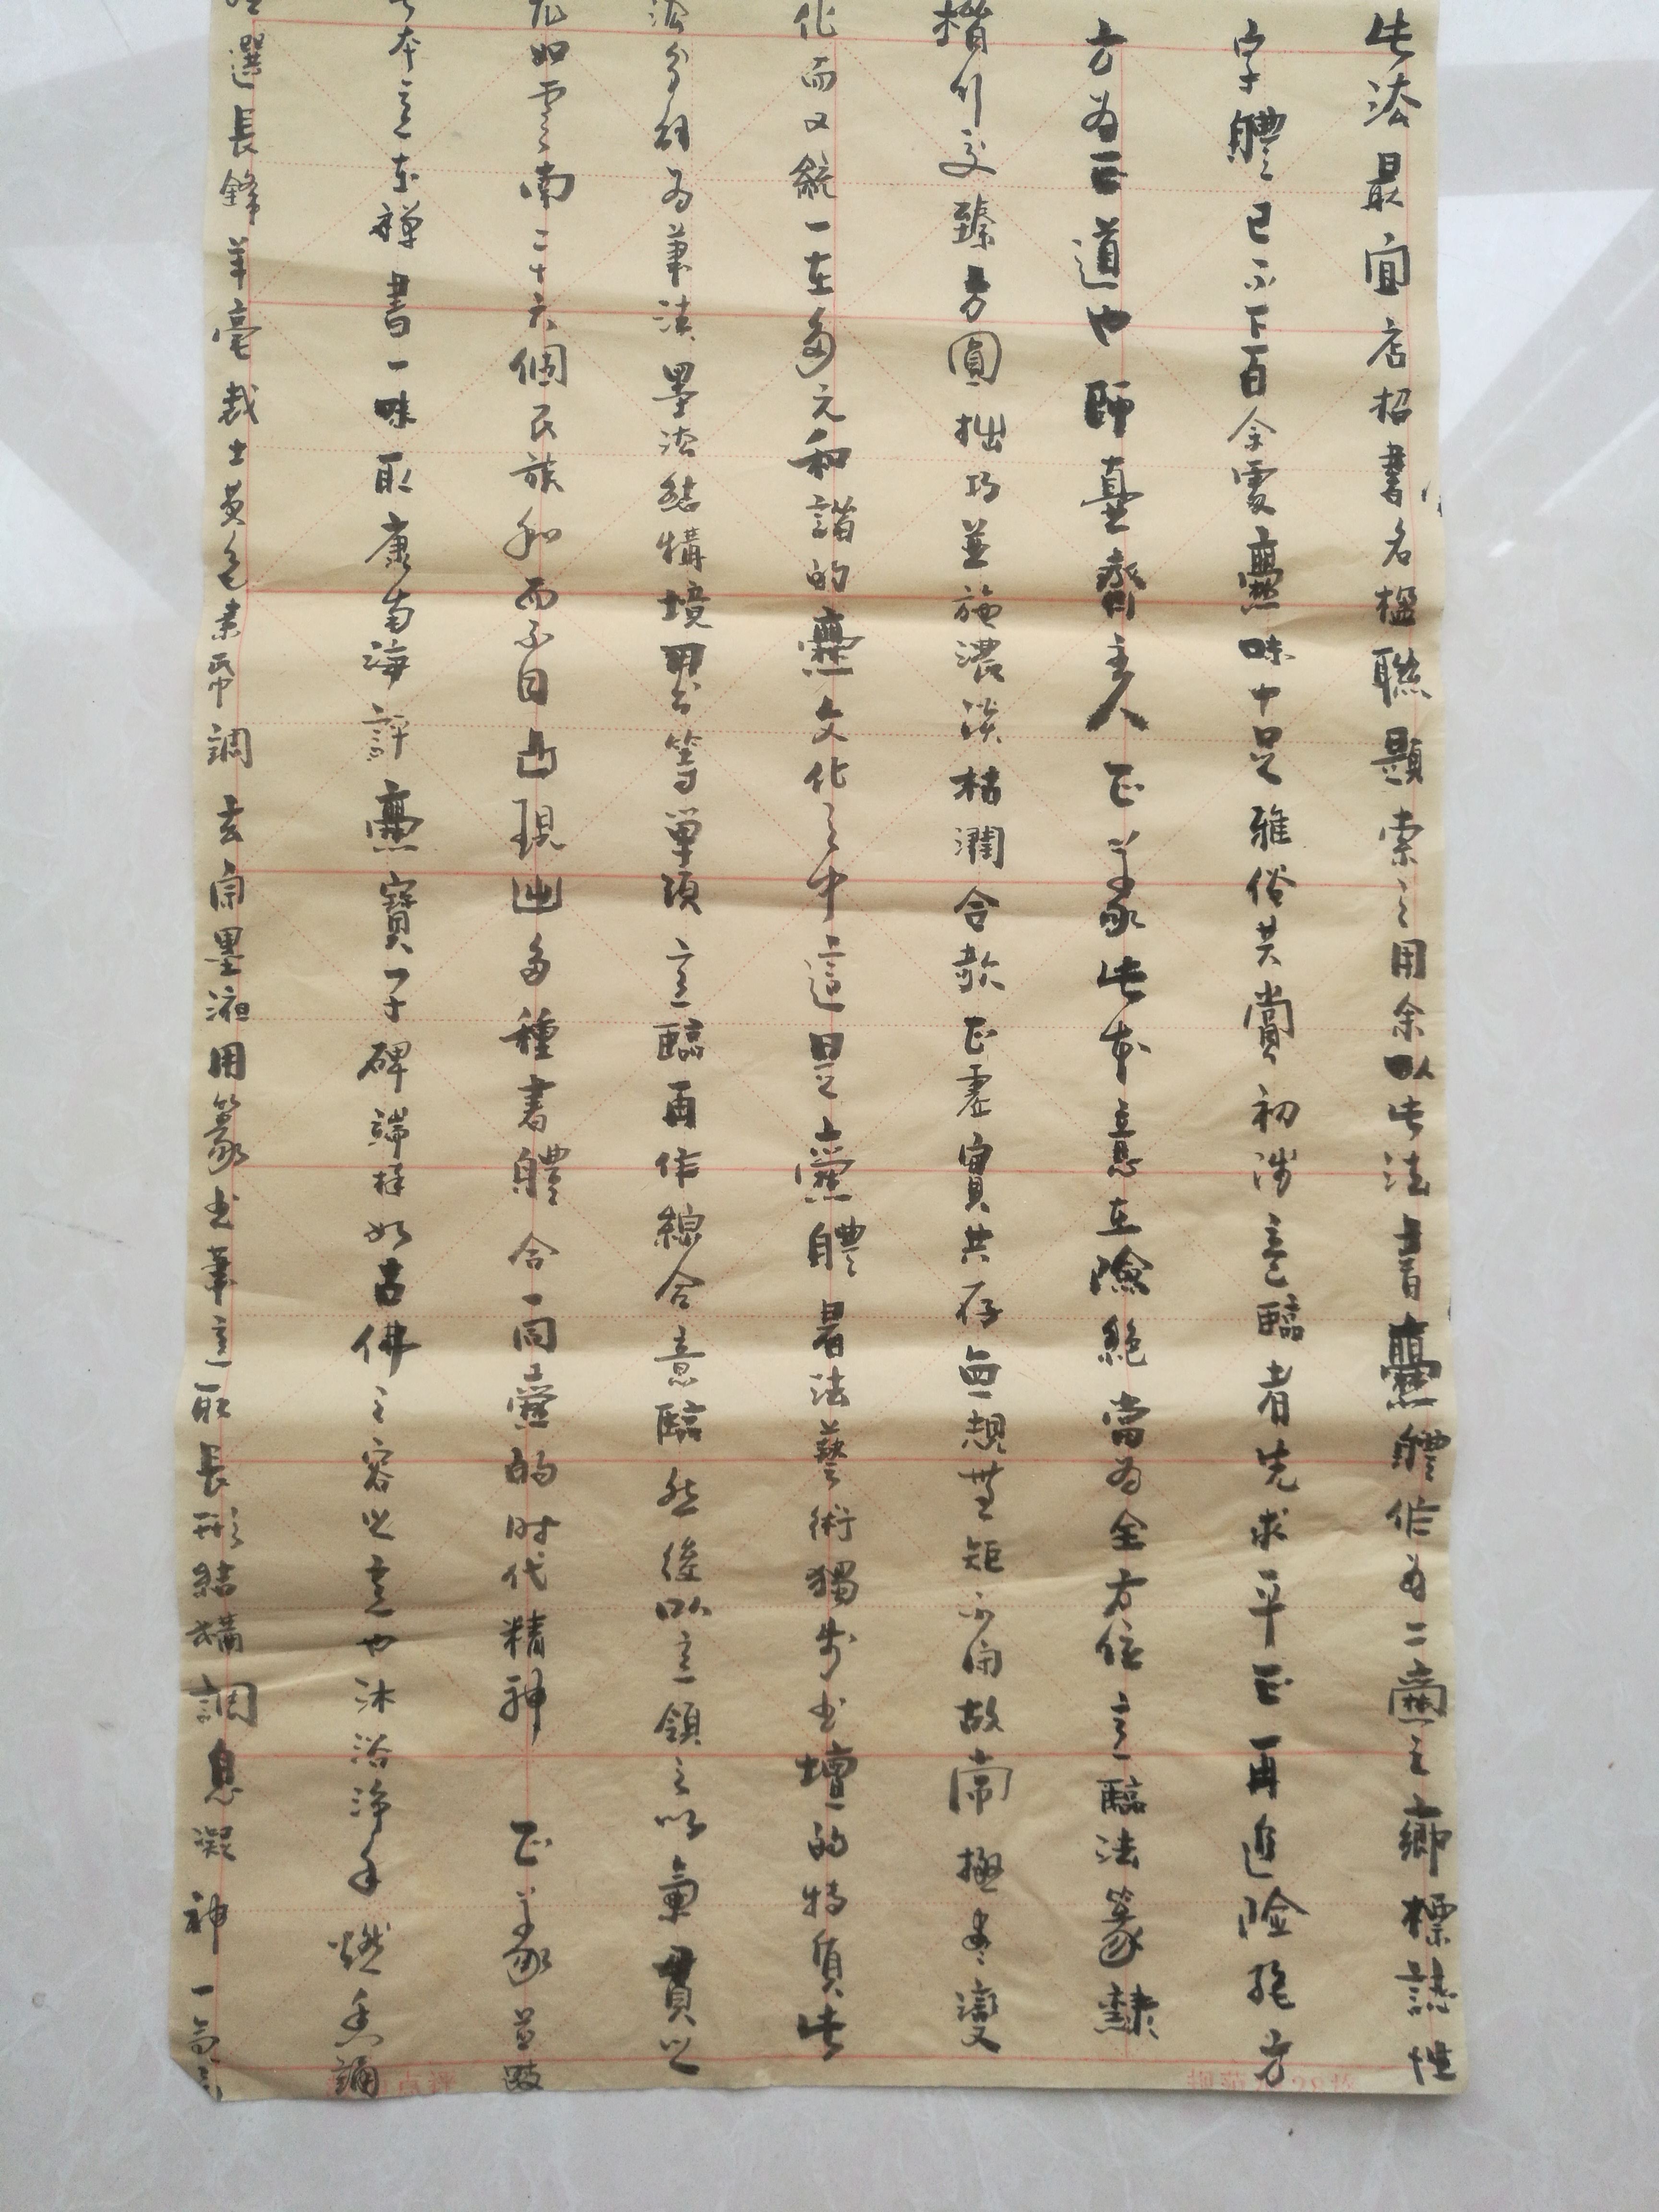 此法最宜店招書名楹聯題索之用余以此法書爨體作為二爨之鄉標誌性
字體已不下百余處爨味十足雅俗共賞初涉意臨者先求平正再追險絕方
方為正道也師真齋主人正篆此本意在險絕當為全方位意臨法篆隸
楷行交臻方圓拙巧並施濃淡枯潤合歌正虛實共存無規無矩不因故常極盡變
化而又統一在多元和諧的爨文化之中這是爨體書法藝術獨步書壇的特質此
法分解為筆法墨法結構境界等單項意臨再作綜合意臨然後以意領之以氣貫之
如雲南二十六個民族和而不同凸現出多種書體合一同爨的时代精神 正篆並跋
本意在禪書一味取康南海評爨寶子碑端樸如古佛之容之意也沐浴淨手燃香誦
選長鋒羊毫裁土黃色素帋調玄宗墨液用篆書筆意取長形結構調息凝神一氣